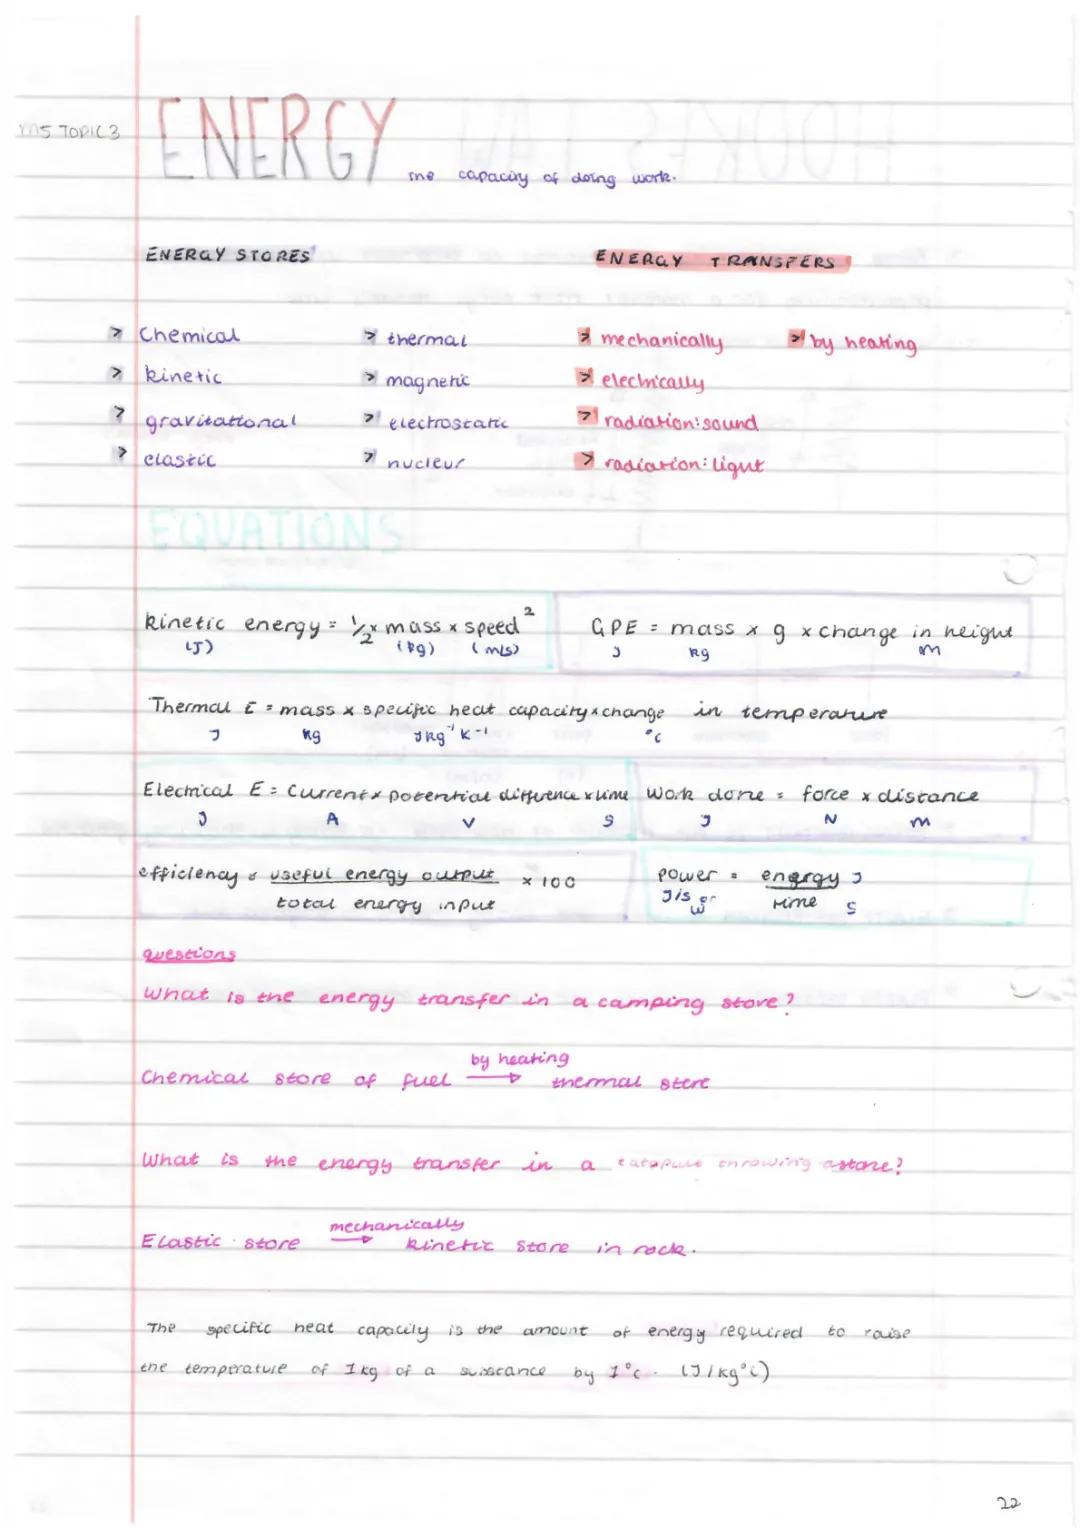 M5 TOPIC 3
ENERGY
the capacity of doing work.
ENERGY STORES
ENERGY TRANSFERS
> Chemical > thermal > mechanically > by heating
> kinetic > magnetic > electrically
> gravitational > electrostatic > radiation: sound
> elastic > nucleur > radiation: light
EQUATIONS
kinetic energy = 1/2 x mass x speed²
(J) (kg) (m/s)
GPE = mass x g x change in height
J kg m
Thermal E = mass x specific heat capacity x change in temperature
J kg J kg⁻¹ K⁻¹ °c
Electrical E = Current x potential difference x time
J A V S
Work done = force x distance
J N m
efficiency = useful energy output x 100
total energy input
power = energy J
J/s or W time s
questions
What is the energy transfer in a camping stove?
by heating
Chemical store of fuel → thermal store
What is the energy transfer in a catapult throwing a stone?
mechanically
Elastic store → kinetic store in rock.
The specific heat capacity is the amount of energy required to raise
the temperature of 1kg of a substance by 1°c. (J/kg°C)
22